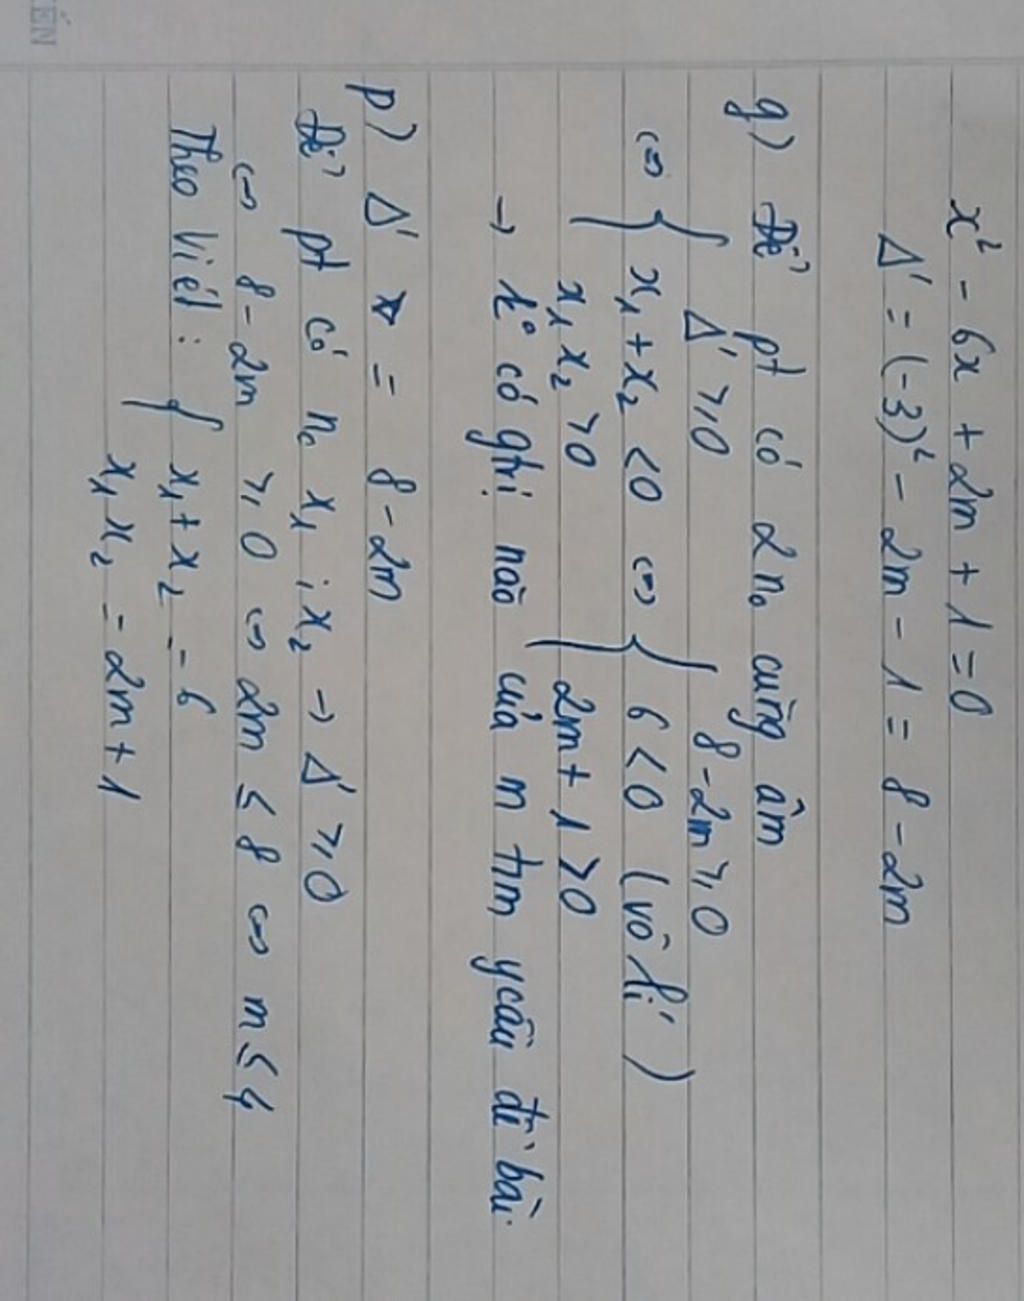 ÉN
x² - 6x + 2m + 1 = 0
Δ' = (-3)² - 2m - 1 = 8 - 2m
g) Để pt có 2 n₀ cùng âm
⇔ { Δ' ≥ 0 { 8 - 2m ≥ 0
x₁ + x₂ < 0 ⇔ 6 < 0 (vô lí)
x₁ x₂ > 0 2m + 1 > 0
→ k° có gtrị nào của m t/m ycầu đề bài.
p) Δ' = 8 - 2m
Để pt có n₀ x₁ ; x₂ → Δ' ≥ 0
⇔ 8 - 2m ≥ 0 ⇔ 2m ≤ 8 ⇔ m ≤ 4
Theo Viét : { x₁ + x₂ = 6
x₁ x₂ = 2m + 1